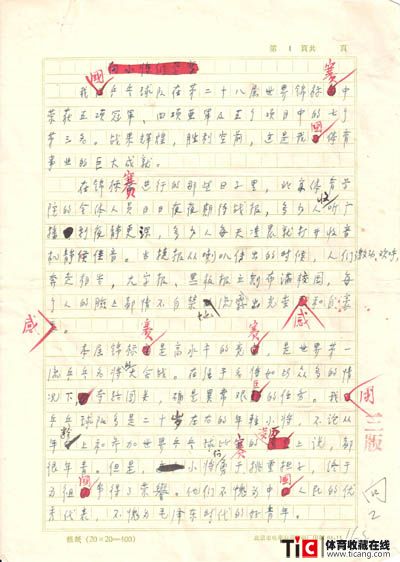 第 1 頁共 頁
我國乒乓球队在第二十八届世界锦标賽中
荣获五项冠军、四项亚军及五个项目中的七个
第三名。战果辉煌，胜利空前，这是我國体育
事业的巨大成就。
在锦标賽进行的那些日子里，北京体育学
院的全体人员日日夜夜期待战报，多少人收听广
播到夜静更深，多少人每天清晨就打开收音
机静候佳音。当捷报从喇叭传出的时候，人们激动、欢呼，
奔走相告，大字报、黑板报立刻布满校园，每
个人的脸上都情不自禁地流露出光荣感和自豪
感。
本届锦标賽是高水平的竞賽，是世界第一
流乒乓名将的大会战。在名将如此众多的情
况下夺回来，确是艰巨的任务。我國
乒乓球队多是二十岁左右的年轻小将，不论从
年龄上和参加世界乒乓球比賽的上说，都
很年青。但是，小将们勇于挑重担子，终于
为祖國争得了荣誉。他们不愧为中國人民的优
秀代表，不愧为毛泽东时代的好青年。
三版
稿纸 (20×20=400)
TiC 体育收藏在线
www.ticang.com